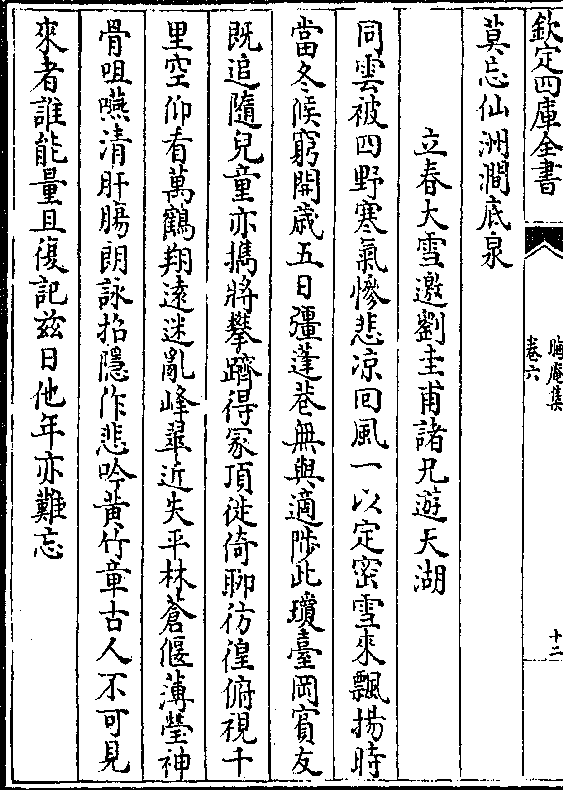 欽定四庫全書
晦庵集
卷六
十二
莫忘仙洲澗底泉
立春大雪邀劉圭甫諸兄遊天湖
同雲被四野寒氣慘悲凉回風一以定密雪來飄揚時
當冬候窮開歲五日彊蓬巷無與適陟此瓊臺岡賓友
既追隨兒童亦攜將攀躋得冢頂徙倚聊彷徨俯視千
里空仰看萬鶴翔遠迷亂峰翠近失平林蒼偃薄瑩神
骨咀嚥清肝腸朗詠招隱作悲吟黄竹章古人不可見
來者誰能量且復記兹日他年亦難忘